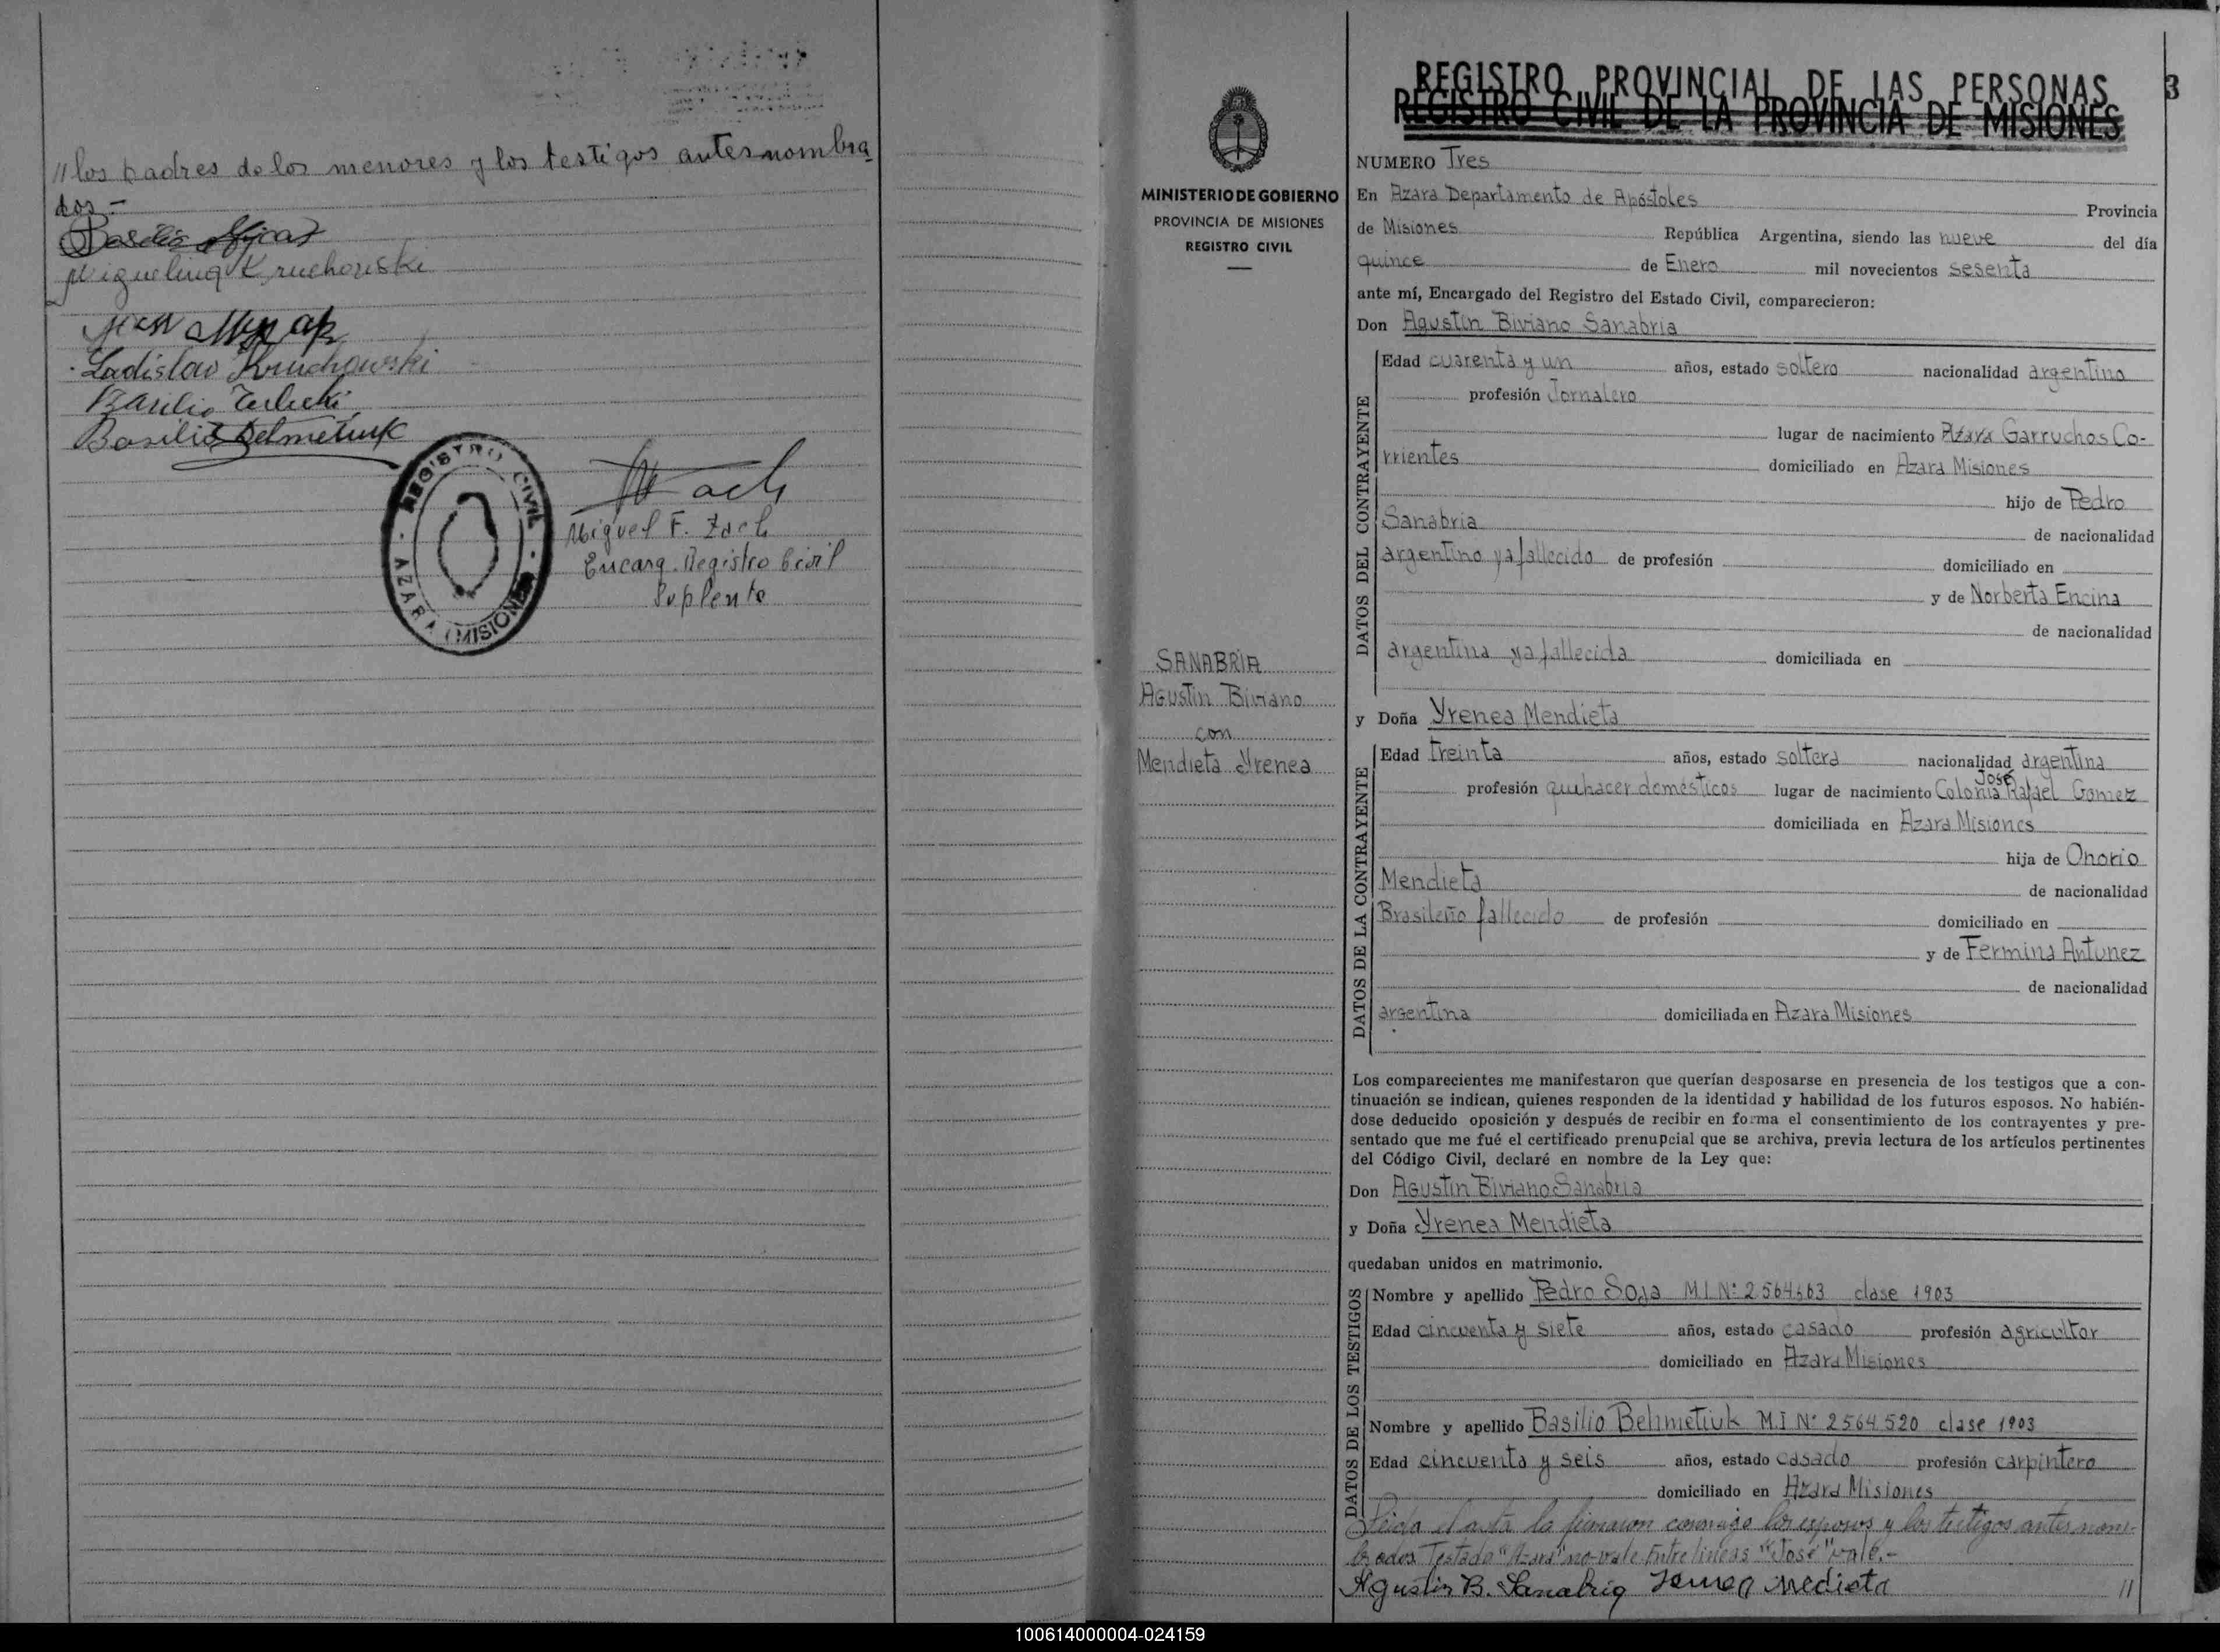 "los padres de los menores y los testigos antes nombra
dos.-
Basilio
Miguelina Kruchowski
Ladislao Kruchowski
Basilio
Basilio Belmetiuk
REGISTRO CIVIL
AZARA (MISIONES)
Miguel F. Zach
Encarg. Registro Civil
Suplente
MINISTERIO DE GOBIERNO
PROVINCIA DE MISIONES
REGISTRO CIVIL
SANABRIA
Agustin Biviano
con
Mendieta Yrenea
REGISTRO PROVINCIAL DE LAS PERSONAS
REGISTRO CIVIL DE LA PROVINCIA DE MISIONES
3
NUMERO Tres
En Azara Departamento de Apóstoles Provincia
de Misiones República Argentina, siendo las nueve del día
quince de Enero mil novecientos sesenta
ante mí, Encargado del Registro del Estado Civil, comparecieron:
Don Agustin Biviano Sanabria
DATOS DEL CONTRAYENTE
Edad cuarenta y un años, estado soltero nacionalidad argentino
profesión Jornalero
lugar de nacimiento Azara Garruchos Co-
rrientes domiciliado en Azara Misiones
hijo de Pedro
Sanabria de nacionalidad
argentino ya fallecido de profesión domiciliado en
y de Norberta Encina
de nacionalidad
argentina ya fallecida domiciliada en
y Doña Yrenea Mendieta
DATOS DE LA CONTRAYENTE
Edad treinta años, estado soltera nacionalidad argentina
José
profesión quehacer domésticos lugar de nacimiento Colonia Rafael Gomez
domiciliada en Azara Misiones
hija de Onorio
Mendieta de nacionalidad
Brasileño fallecido de profesión domiciliado en
y de Fermina Antunez
de nacionalidad
argentina domiciliada en Azara Misiones
Los comparecientes me manifestaron que querían desposarse en presencia de los testigos que a con-
tinuación se indican, quienes responden de la identidad y habilidad de los futuros esposos. No habién-
dose deducido oposición y después de recibir en forma el consentimiento de los contrayentes y pre-
sentado que me fué el certificado prenupcial que se archiva, previa lectura de los artículos pertinentes
del Código Civil, declaré en nombre de la Ley que:
Don Agustin Biviano Sanabria
y Doña Yrenea Mendieta
quedaban unidos en matrimonio.
DATOS DE LOS TESTIGOS
Nombre y apellido Pedro Soja M.I. Nº 2.564.663 clase 1903
Edad cincuenta y siete años, estado casado profesión agricultor
domiciliado en Azara Misiones
Nombre y apellido Basilio Behmetiuk M.I. Nº 2564.520 clase 1903
Edad cincuenta y seis años, estado casado profesión carpintero
domiciliado en Azara Misiones
Leida el acta la firmaron conmigo los esposos y los testigos antes nom-
brados Testado "Azara" no vale Entre lineas "José" vale.-
Agustin B. Sanabria Medieta //
100614000004-024159